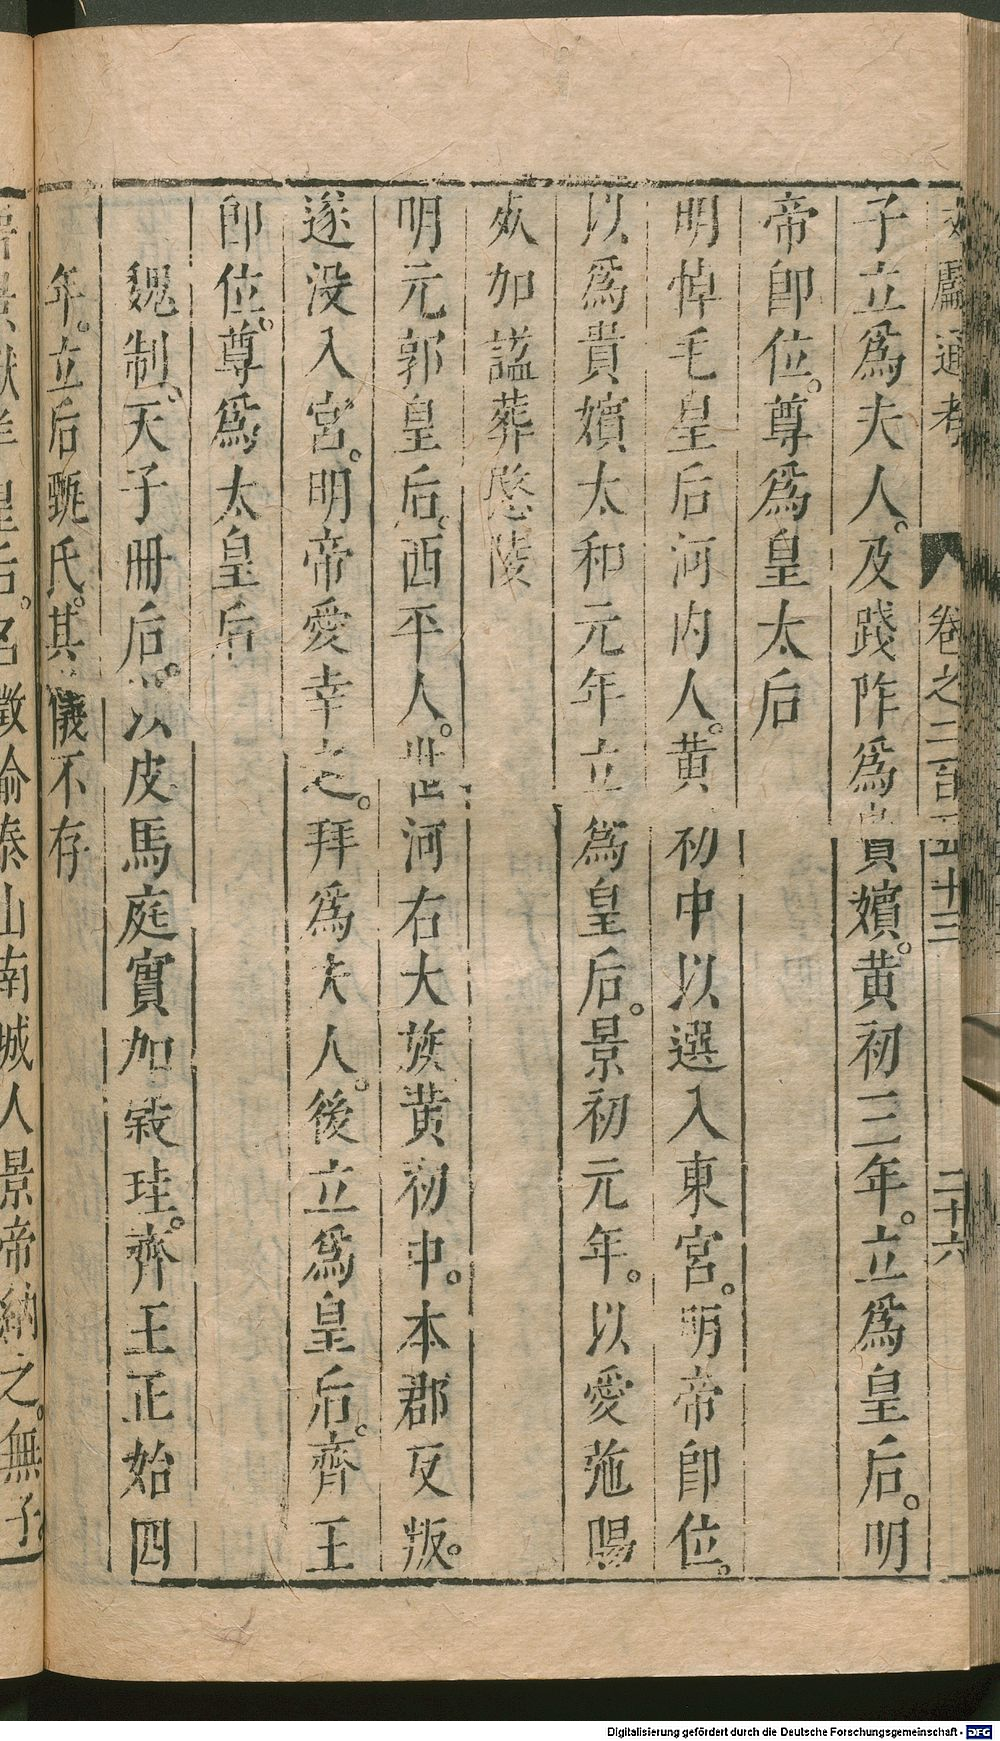 文獻通考 卷之二百五十三 二十六
子立爲夫人。及踐阼爲貴嬪。黄初三年。立爲皇后。明
帝卽位。尊爲皇太后
明悼毛皇后河内人。黄初中以選入東宮。明帝卽位。
以爲貴嬪太和元年立爲皇后。景初元年。以愛弛賜
死加諡葬愍陵
明元郭皇后。西平人。世河右大族黄初中。本郡反叛。
遂没入宮。明帝愛幸之。拜爲夫人。後立爲皇后。齊王
卽位。尊爲太皇后
魏制。天子冊后。以皮馬庭實加穀珪。齊王正始四
年。立后甄氏。其儀不存
景獻羊皇后。名徽瑜泰山南城人景帝納之。無子
Digitalisierung gefördert durch die Deutsche Forschungsgemeinschaft - DFG